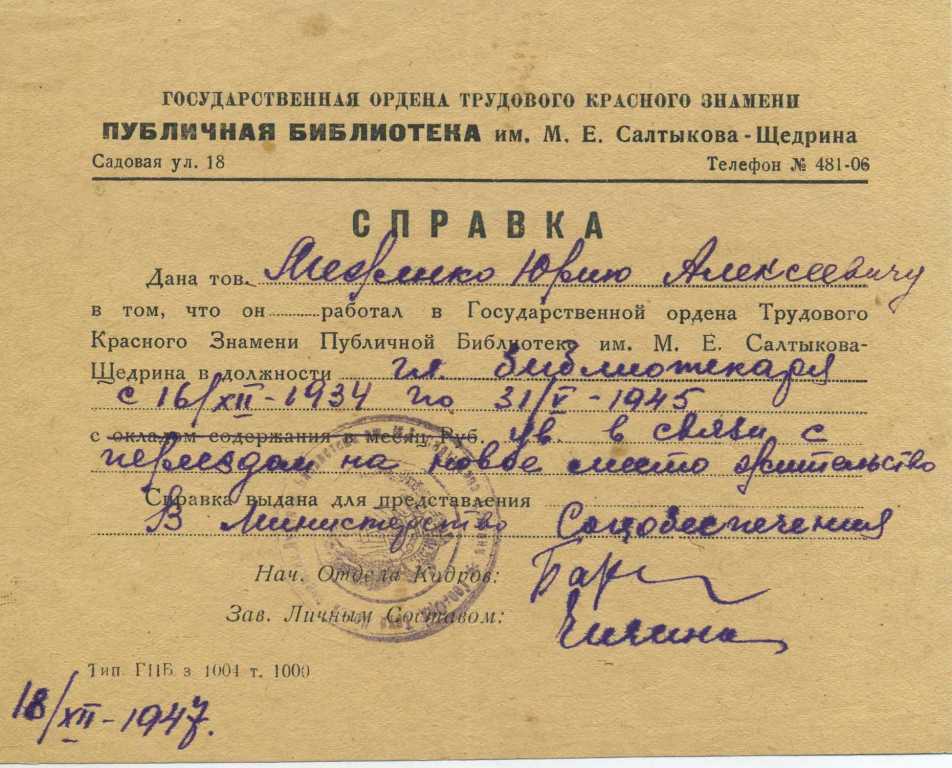 ГОСУДАРСТВЕННАЯ ОРДЕНА ТРУДОВОГО КРАСНОГО ЗНАМЕНИ
ПУБЛИЧНАЯ БИБЛИОТЕКА им. М. Е. Салтыкова-Щедрина
Садовая ул. 18 Телефон № 481-06
СПРАВКА
Дана тов. Межменко Юрию Алексеевичу
в том, что он работал в Государственной ордена Трудового
Красного Знамени Публичной Библиотеке им. М. Е. Салтыкова-
Щедрина в должности гл. библиотекаря
с 16/XII-1934 по 31/V-1945
с окладом содержания в месяц Руб. ув. в связи с
переездом на новое место жительство
Справка выдана для представления
В Министерство Соцобеспечения
Нач. Отдела Кадров:
Зав. Личным Составом:
Тип. ГПБ з 1004 т. 1000
18/XII-1947.